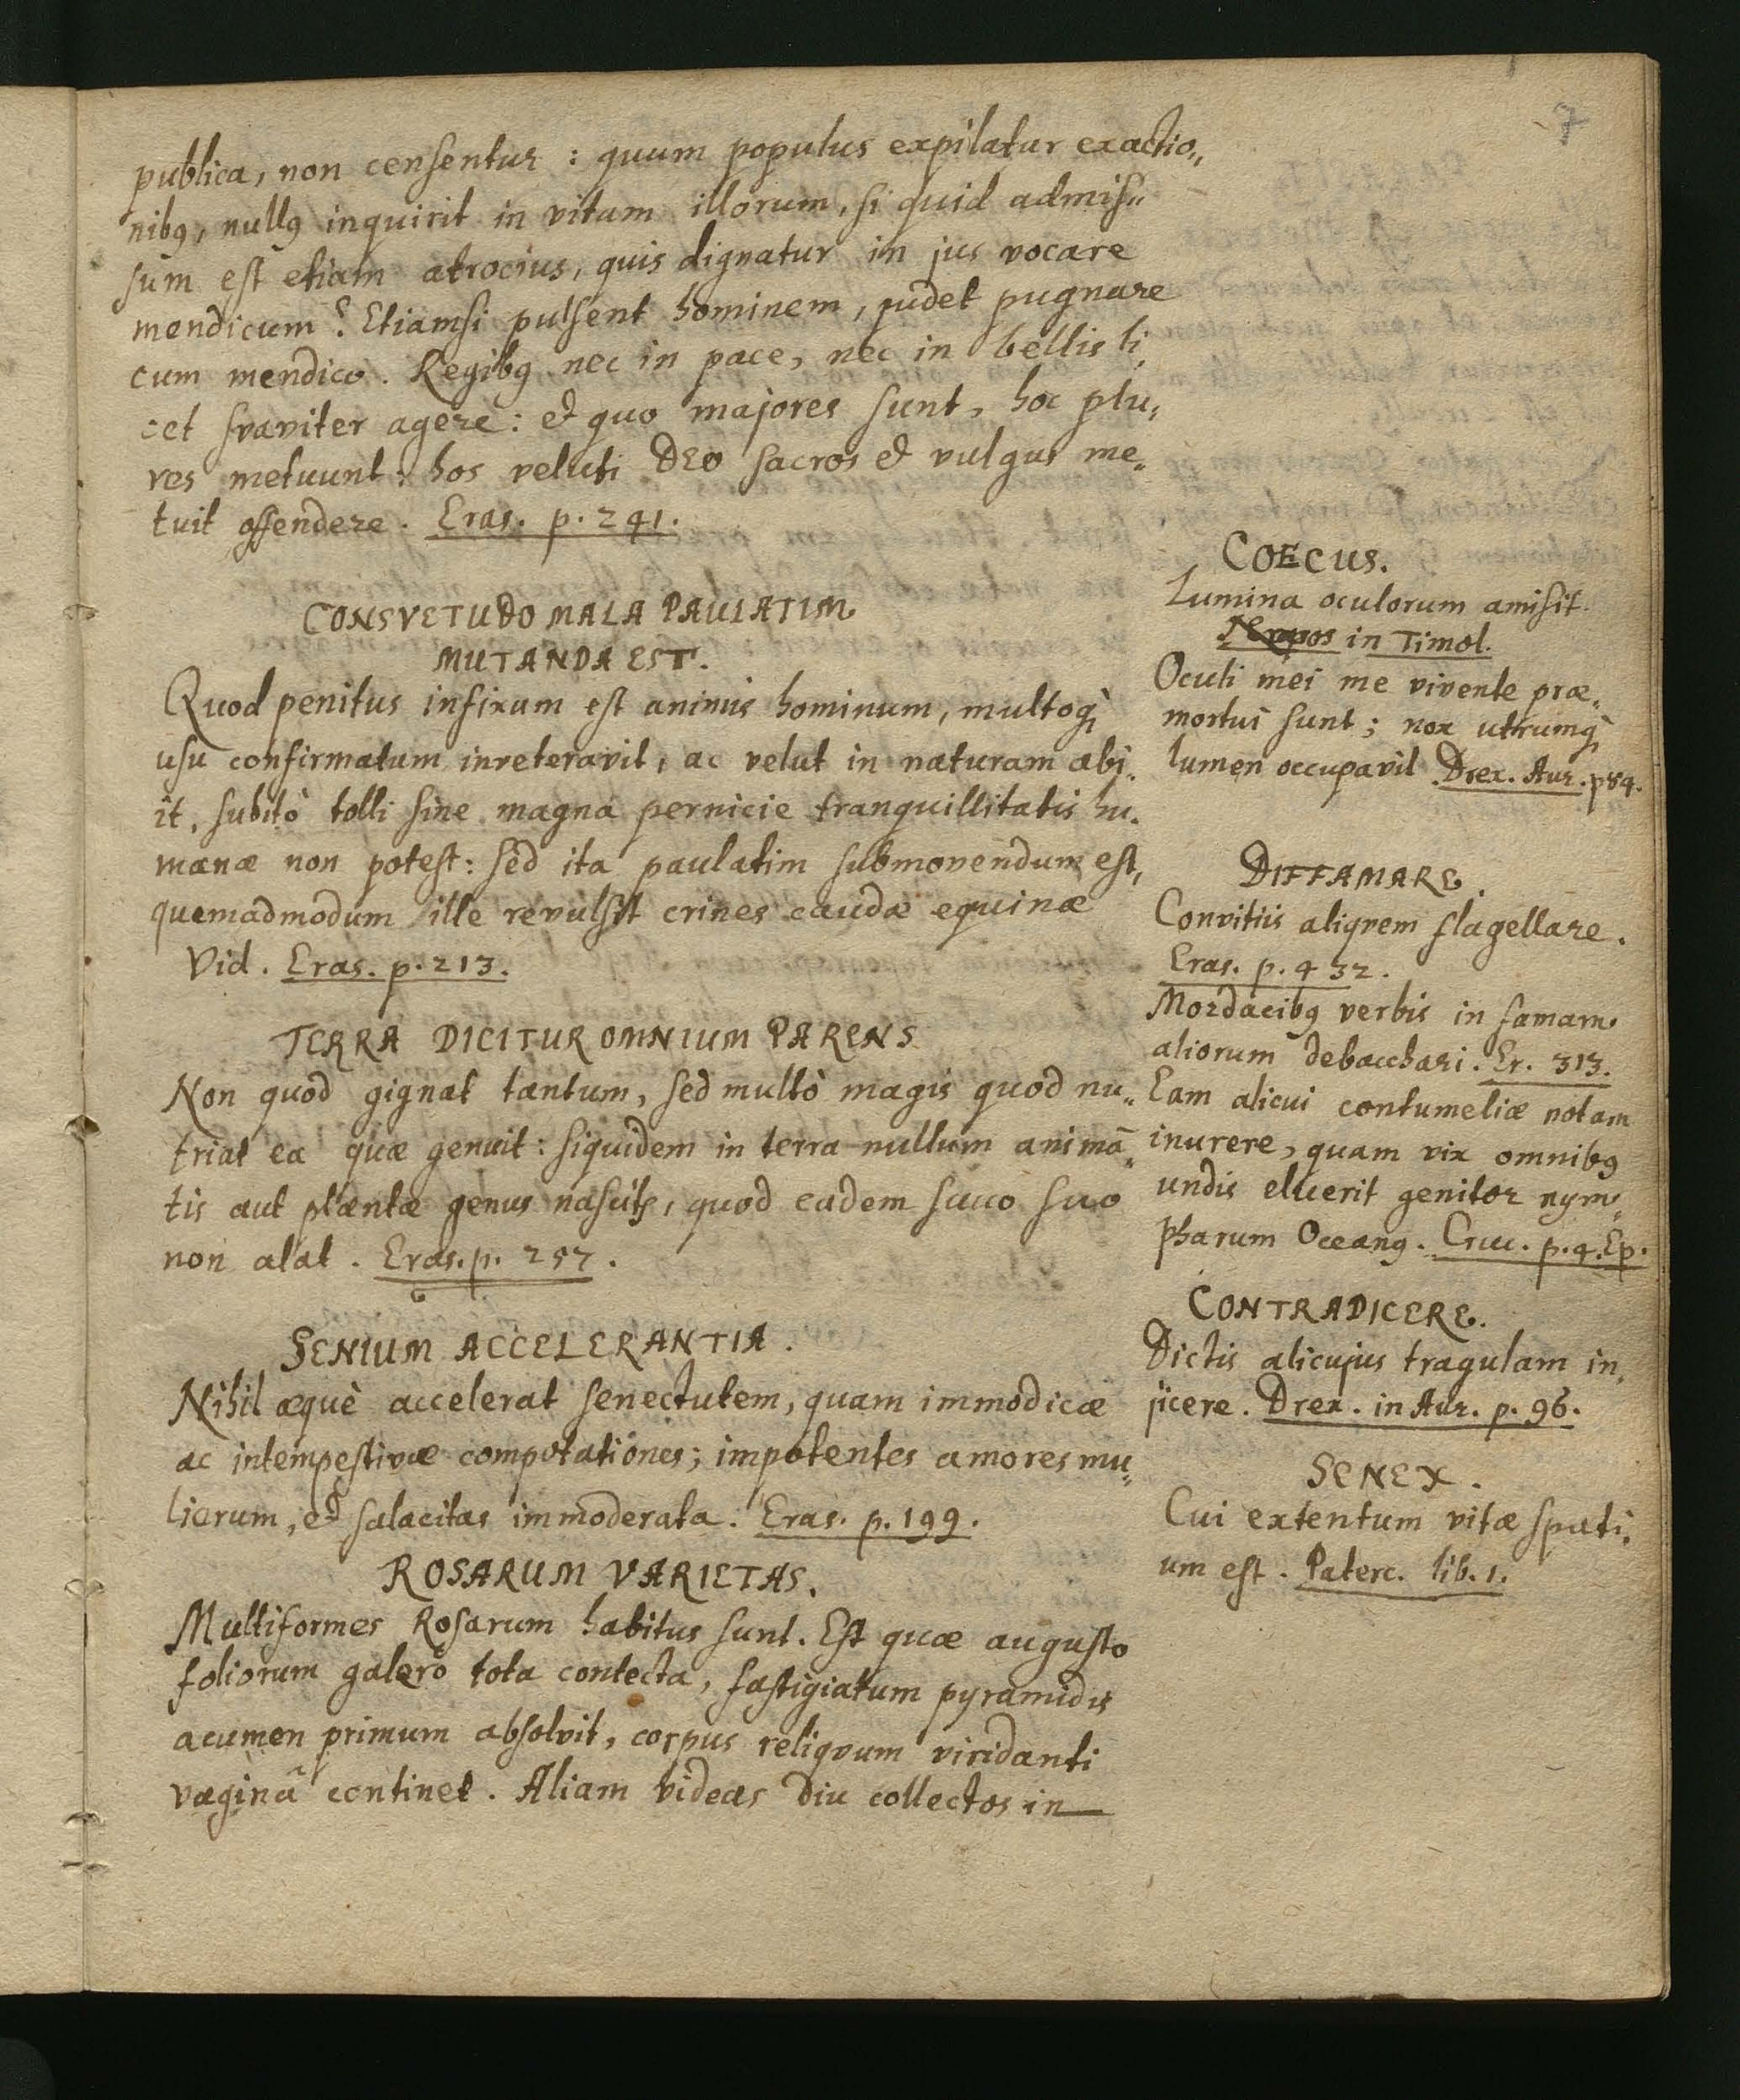 7
publica, non censentur : quum populus expilatur exactio„
nibꝯ, nullꝯ inquirit in vitam illorum, si quid admis„
sum est etiam atrocius, quis dignatur in jus vocare
mendicum? Etiamsi pulsent hominem, pudet pugnare
cum mendico. Regibꝯ nec in pace, nec in bellis li„
cet svaviter agere: & quo majores sunt, hoc plu„
res metuunt: hos veluti DEO sacros & vulgus me„
tuit offendere. Eras. p. 241.
CONSVETUDO MALA PAULATIM
MUTANDA EST.
Quod penitus infixum est animis hominum, multoqꝫ
usu confirmatum inveteravit, ac velut in naturam abi„
it, subitò tolli sine magna pernicie tranquillitatis hu„
manæ non potest: sed ita paulatim submovendum est,
quemadmodum ille revulsit crines caudæ equinæ
Vid. Eras. p. 213.
TERRA DICITUR OMNIUM PARENS
Non quod gignat tantum, sed multò magis quod nu„
triat ea quæ genuit: siquidem in terra nullum animã„
tis aut plantæ genus nascitꝭ, quod eadem succo suo
non alat. Eras. p. 257.
SENIUM ACCELERANTIA.
Nihil æquè accelerat senectutem, quam immodicæ
ac intempestivæ compotationes; impotentes amores mu„
lierum, & salacitas immoderata. Eras. p. 199.
ROSARUM VARIETAS.
Multiformes Rosarum habitus sunt. Est quæ augusto
foliorum galero tota contecta, fastigiatum pyramidis
acumen primum absolvit, corpus reliqvum viridanti
vaginâ continet. Aliam videas diu collectos in
COECUS.
Lumina oculorum amisit.
Nepos in Timol.
Oculi mei me vivente præ„
mortui sunt; nox utrumqꝫ
lumen occupavit Drex. Aur. p 84.
DIFFAMARE.
Convitiis aliqvem flagellare.
Eras. p. 432.
Mordacibꝯ verbis in famam
aliorum debacchari. Er. 313.
Eam alicui contumeliæ notam
inurere, quam vix omnibꝯ
undis eluerit genitor nym„
pharum Oceanꝯ. Cruc. p. 4. Ep.
CONTRADICERE.
Dictis alicujus tragulam in„
jicere. Drex. in Aur. p. 96.
SENEX.
Cui extentum vitæ spati„
um est. Paterc. lib. 1.